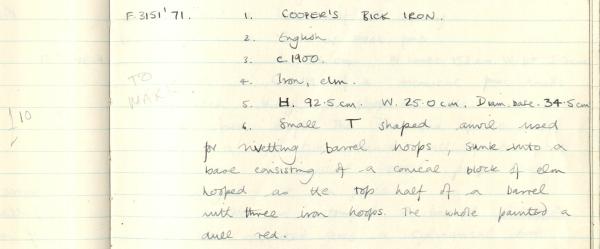 F.3151'71. 1. COOPER'S BICK IRON.
2. English
3. c.1900.
4. Iron, elm.
TO
MARK
5. H. 92.5cm. W. 25.0cm. Diam. base. 34.5cm
10
6. Small T shaped anvil used
for rivetting barrel hoops, sunk into a
base consisting of a conical block of elm
hooped as the top half of a barrel
with three iron hoops. The whole painted a
dull red.